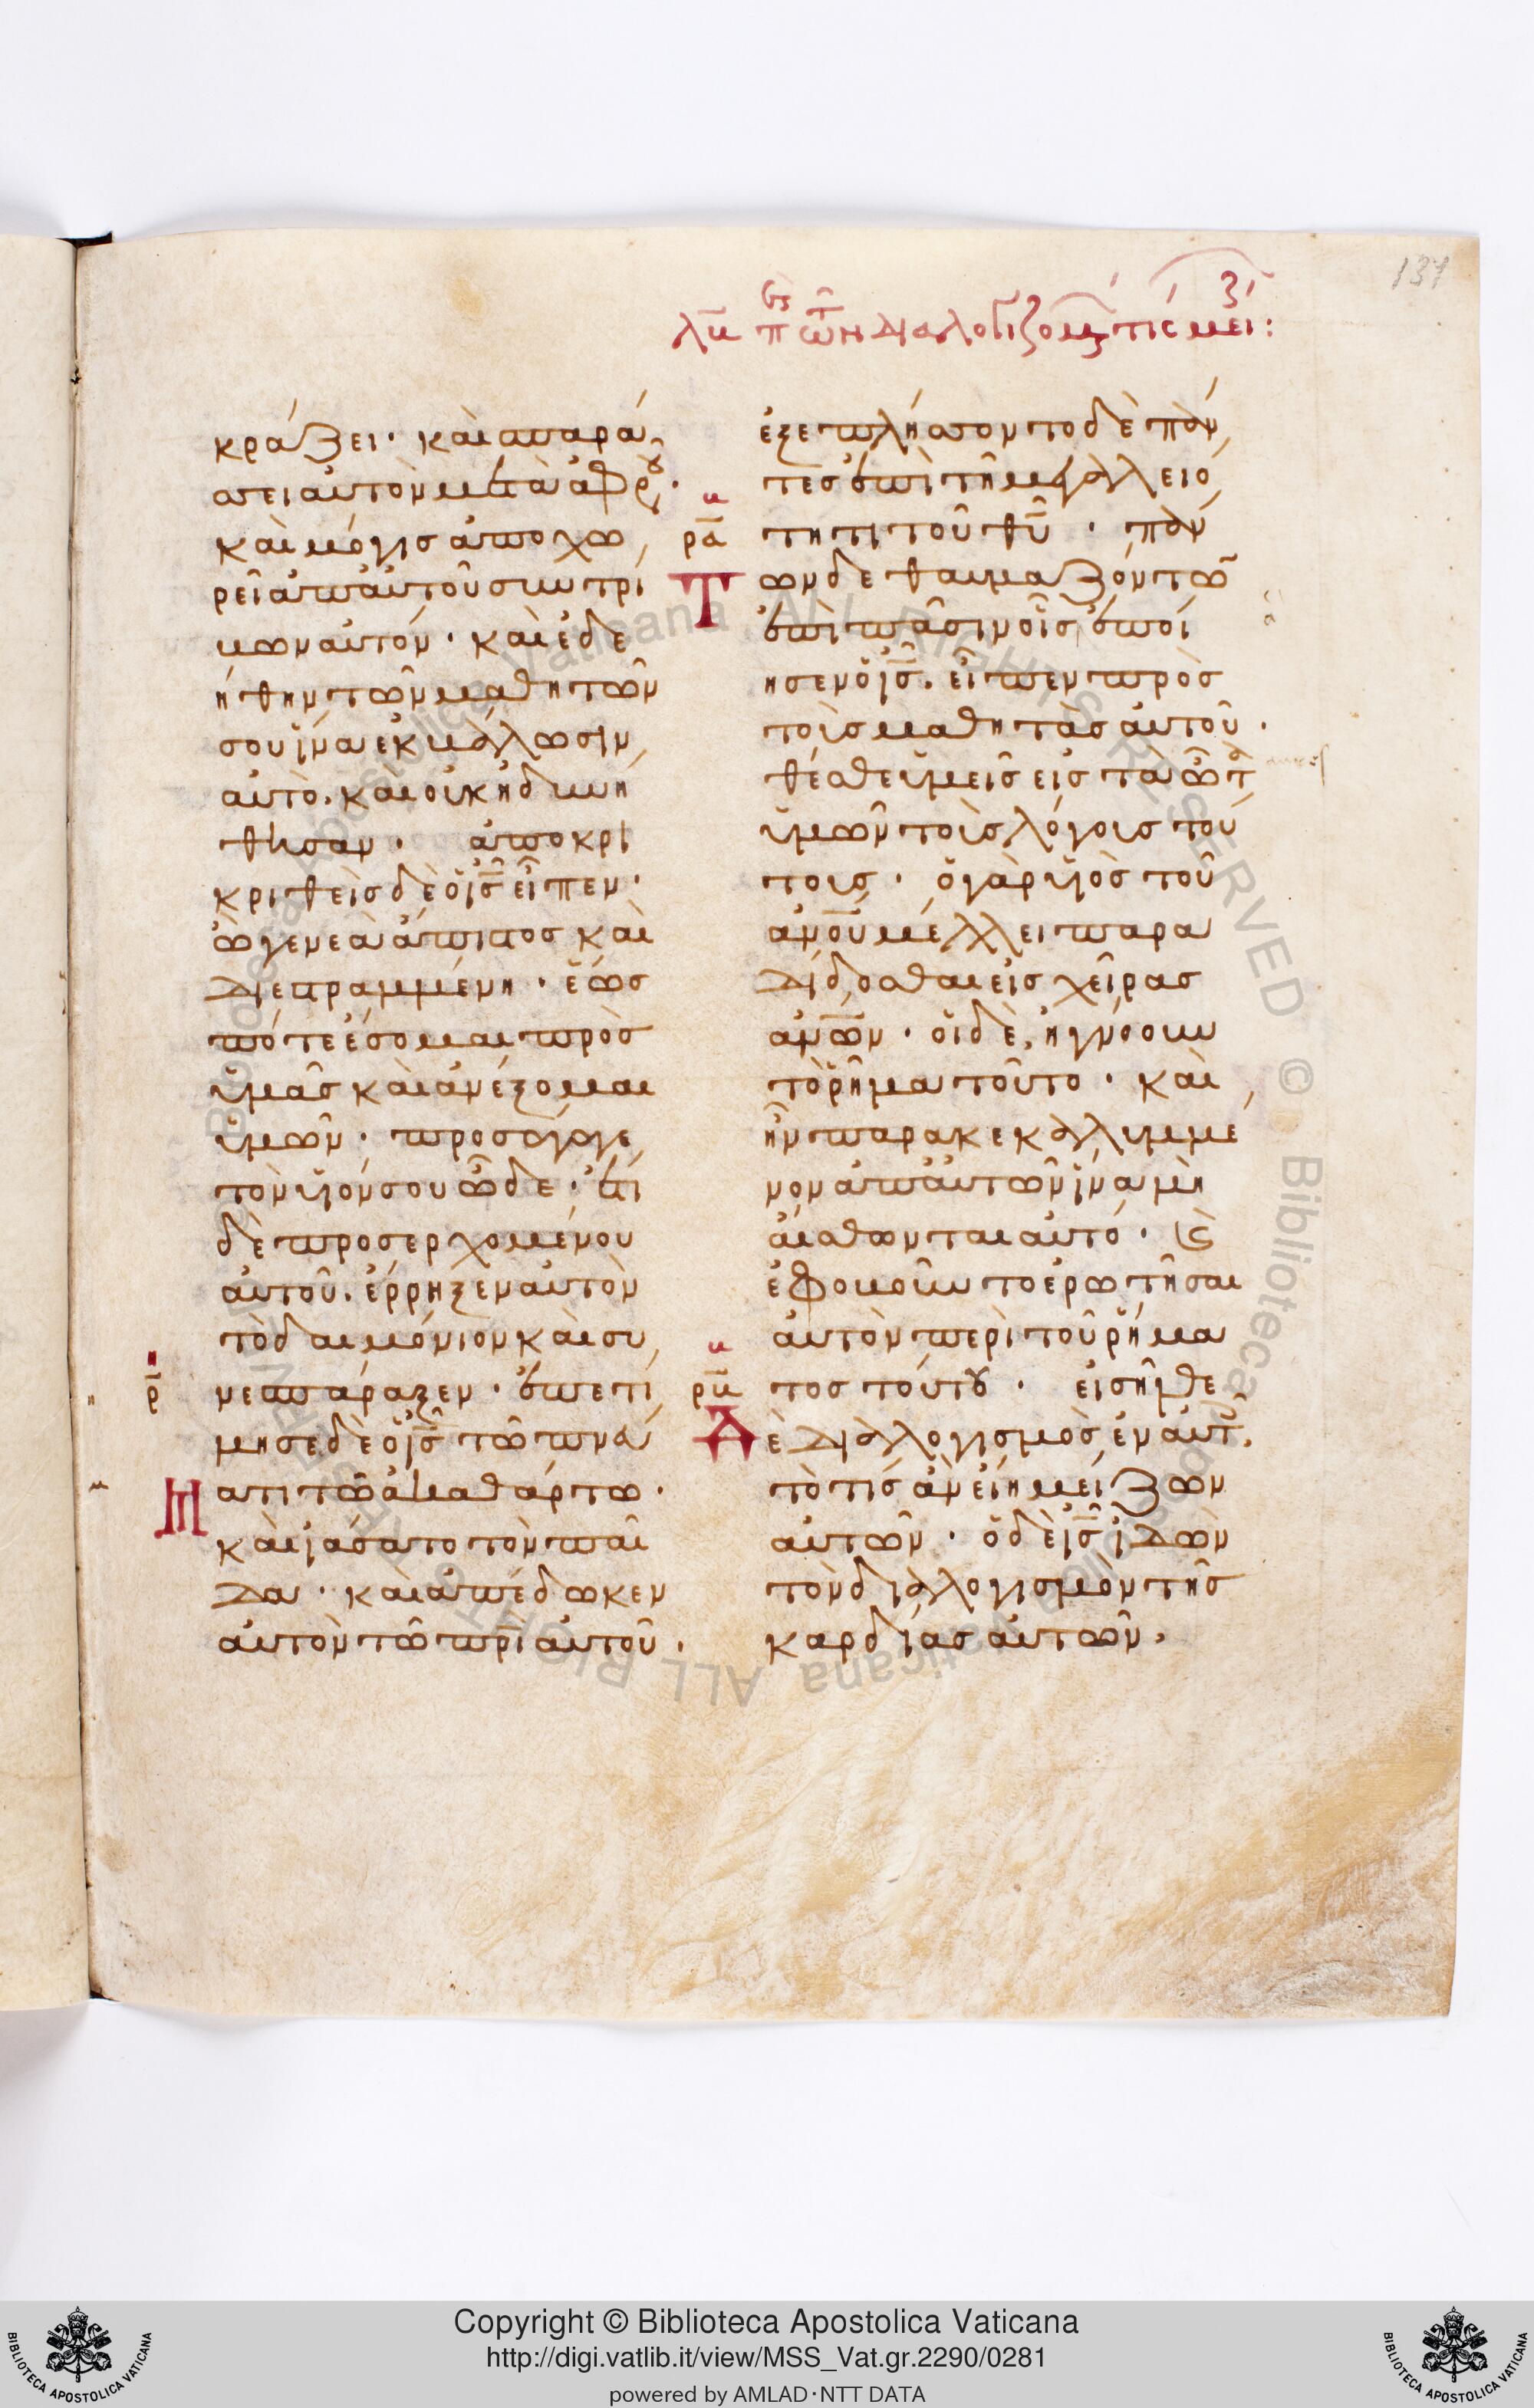 137
λβ περὶ τῶν διαλογιζομένων τίς μεί:
κράζει· καὶ σπαρά
σσει αὐτὸν μετὰ ἀφροῦ·
καὶ μόγις ἀποχω
ρεῖ ἀπ' αὐτοῦ συντρί
βων αὐτόν· καὶ ἐδε
ήθην τῶν μαθητῶν
σου ἵνα ἐκβάλωσιν
αὐτό· καὶ οὐκ ἠδυνή
θησαν· ἀποκρι
κριθεὶς δὲ ὁ ις εἶπεν·
ὦ γενεὰ ἄπιστος καὶ
διεστραμμένη· ἕως
πότε ἔσομαι πρὸς
ὑμᾶς καὶ ἀνέξομαι
ὑμῶν· προσάγαγε
τὸν υἱόν σου ὧδε· ἔτι
δὲ προσερχομένου
αὐτοῦ· ἔρρηξεν αὐτὸν
τὸ δαιμόνιον καὶ συ
νεσπάραξεν· ἐπετί
μησε δὲ ὁ ις τῶ πνα
ατι τῶ ἀκαθάρτω·
καὶ ἰάσατο τὸν παῖ
δα· καὶ ἀπέδωκεν
αὐτὸν τῶ πρι αὐτοῦ·
ρ
ἐξεπλήσσοντο δὲ πάν
τες ἐπὶ τῆ μεγαλειό
τητι τοῦ θυ· πάν
ρα
Των δὲ θαυμαζόντων
ἐπὶ πᾶσιν οἷς ἐποί
ησεν ὁ ις· εἶπεν πρὸς
τοὺς μαθητὰς αὐτοῦ·
θέσθε ὑμεῖς εἰς τὰ ὦτα
ὑμῶν τοὺς λόγους τού
τους· ὁ γὰρ υἱὸς τοῦ
ανου μέλλει παρα
δίδοσθαι εἰς χεῖρας
ανων· οἱ δὲ, ἠγνόουν
τὸ ῥῆμα τοῦτο· καὶ
ἦν παρακεκαλυμμέ
νον ἀπ' αὐτῶν ἵνα μὴ
αἴσθωνται αὐτό· καὶ
ἐφοβοῦντο ἐρωτῆσαι
αὐτὸν περὶ τοῦ ῥήμα
τος τούτου· εἰσῆλθε
ρβ
Δὲ διαλογισμὸς ἐν αὐτοῖς,
τὸ τίς ἂν εἴη μείζων
αὐτῶν· ὁ δὲ ις ἰδὼν
τὸν διαλογισμὸν τῆς
καρδίας αὐτῶν,
Copyright © Biblioteca Apostolica Vaticana
http://digi.vatlib.it/view/MSS_Vat.gr.2290/0281
powered by AMLAD·NTT DATA
BIBLIOTECA APOSTOLICA VATICANA
BIBLIOTECA APOSTOLICA VATICANA